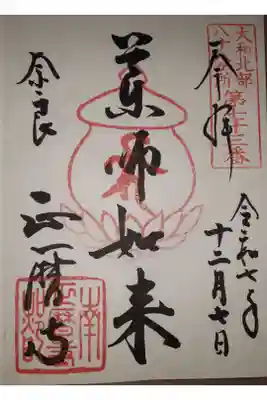 大和北部
八十八所
奉拝
令和七年
十二月七日
薬師如来
奈良
正暦寺